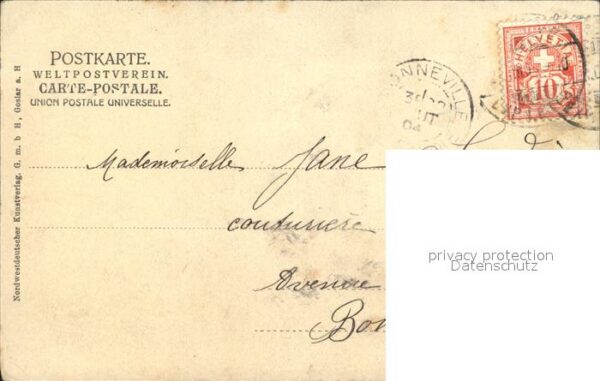 POSTKARTE.
WELTPOSTVEREIN.
CARTE-POSTALE.
UNION POSTALE UNIVERSELLE.
HELVETIA
10
ONNEVILLE
04
Mademoiselle Jane
couturière
Avenue
Bon
privacy protection
Datenschutz
Nordwestdeutscher Kunstverlag. G. m b H, Goslar a. H